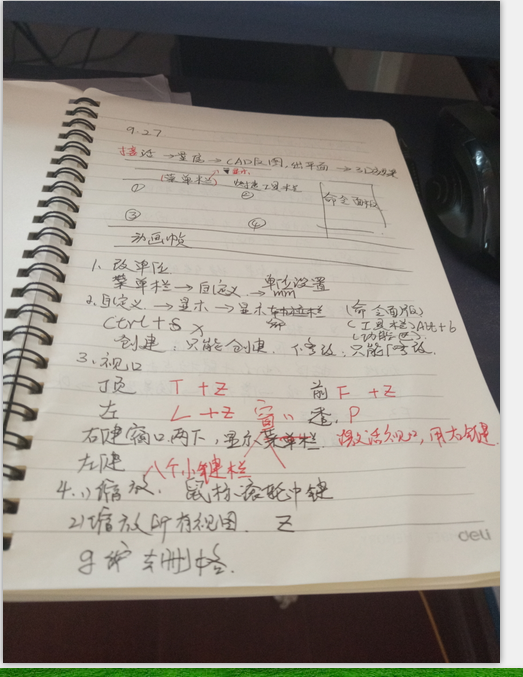 9.27
接近 → 量房 → CAD原图,出平面 → 3D效果
(菜单栏) 快速工具栏
① ② 命令面板
③ ④
动画帧
1. 改单位
菜单栏 → 自定义 → 单位设置
mm
2. 自定义 → 显示 → 显示 (命令面板)
Ctrl + S X (工具栏) Alt + 6
(功能区)
创建:只能创建. 修改:只能修改.
3. 视口
顶 T + Z 前 F + Z
左 L + Z 透. P
右键窗口两下,显示菜单栏. 激活视口,用右键.
左键 八个小键栏
4. 1) 缩放. 鼠标滚轮中键
2) 缩放所有视图. Z
g 栅格.
deli